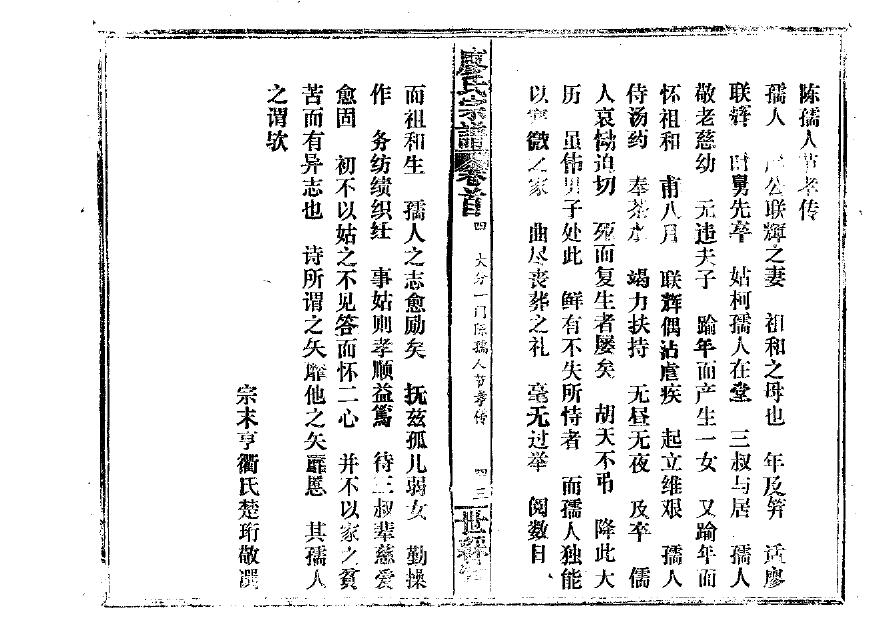 陈孺人节孝传
孺人 公联輝之妻 祖和之母也 年及笄 适廖
联辉 时舅先卒 姑柯孺人在堂 三叔与居 孺人
敬老慈幼 无违夫子 踰年而产生一女 又踰年而
怀祖和 甫八月 联辉偶沾虐疾 起立维艰 孺人
侍汤药 奉茶水 竭力扶持 无昼无夜 及卒 儒
人哀恸迫切 死而复生者屡矣 胡天不弔 降此大
历 虽伟男子处此 鲜有不失所恃者 而孺人独能
以寒微之家 曲尽丧葬之礼 毫无过举 阅数月、
廖氏宗譜 卷首 四 大分一门陈孺人节孝传 四三 世綵堂
而祖和生 孺人之志愈励矣 抚兹孤儿弱女 勤操
作 务纺绩织纴 事姑则孝顺益篤 待三叔辈慈爱
愈固 初不以姑之不见答而怀二心 并不以家之贫
苦而有异志也 诗所谓之矢靡他之矢靡慝 其孺人
之谓欤
宗末亨衢氏楚珩敬撰